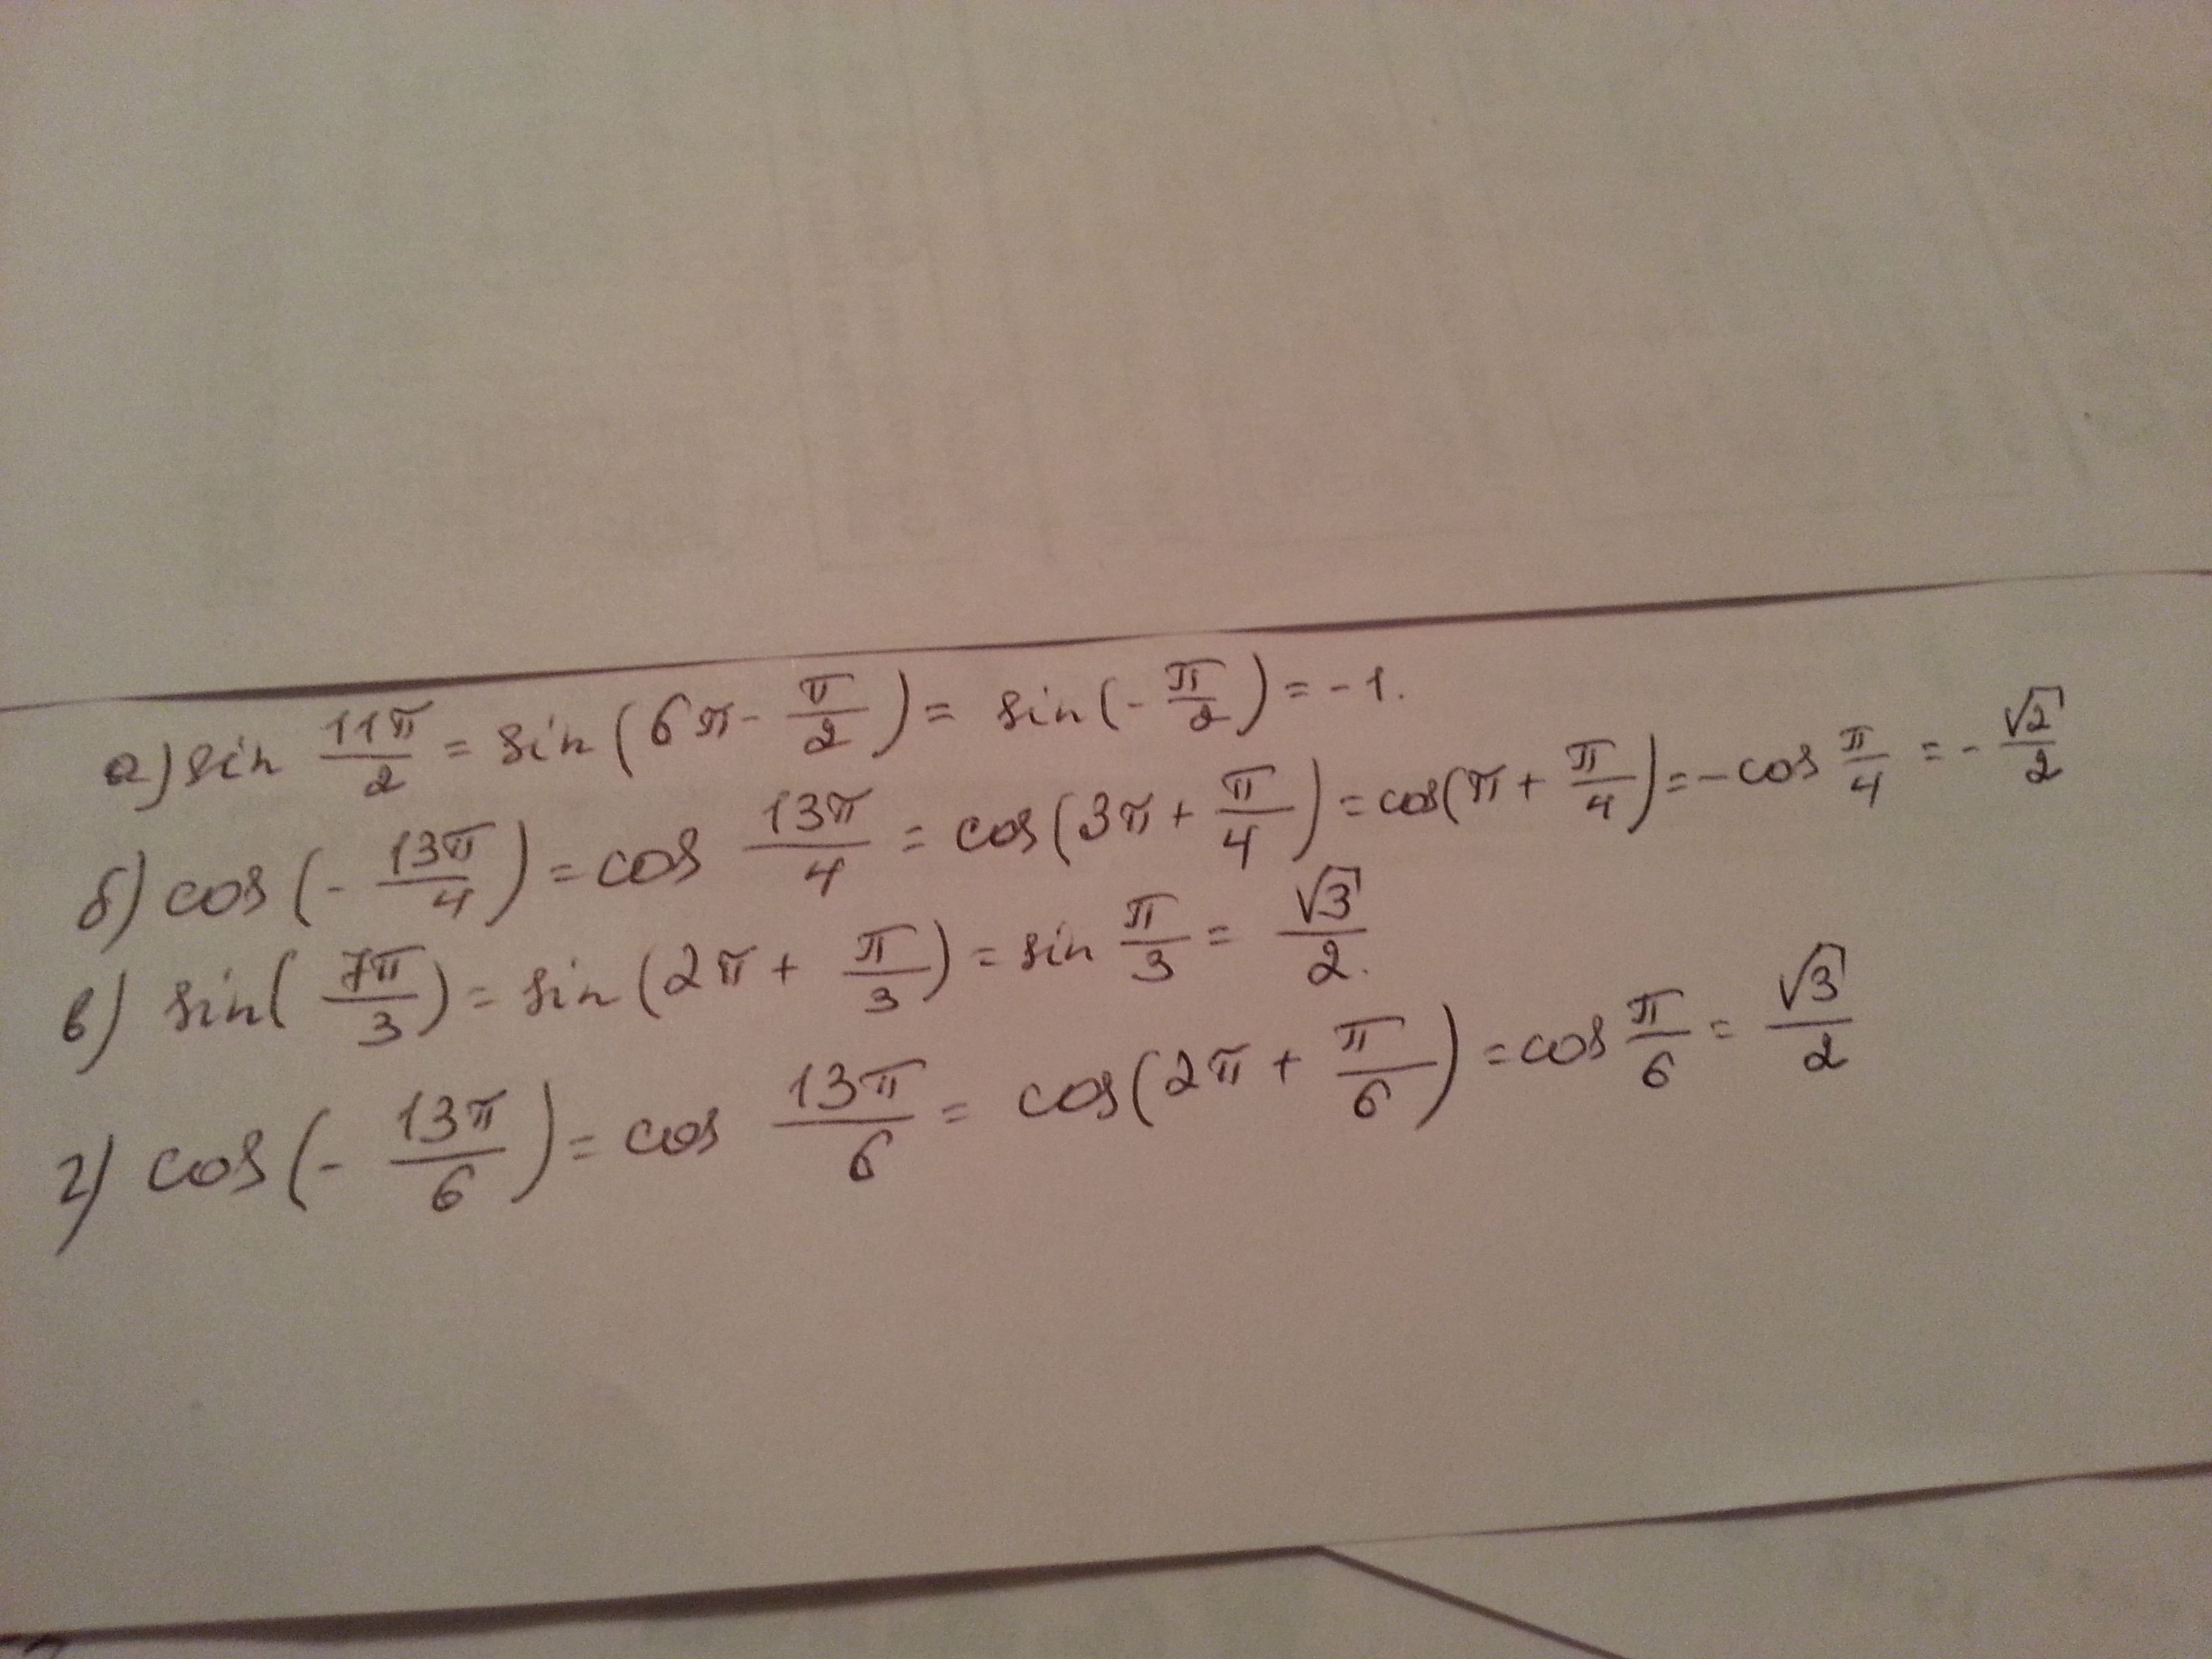 а) sin 11π/2 = sin(6π - π/2) = sin(-π/2) = -1.
б) cos(-13π/4) = cos 13π/4 = cos(3π + π/4) = cos(π + π/4) = -cos π/4 = -√2/2
в) sin(7π/3) = sin(2π + π/3) = sin π/3 = √3/2.
г) cos(-13π/6) = cos 13π/6 = cos(2π + π/6) = cos π/6 = √3/2